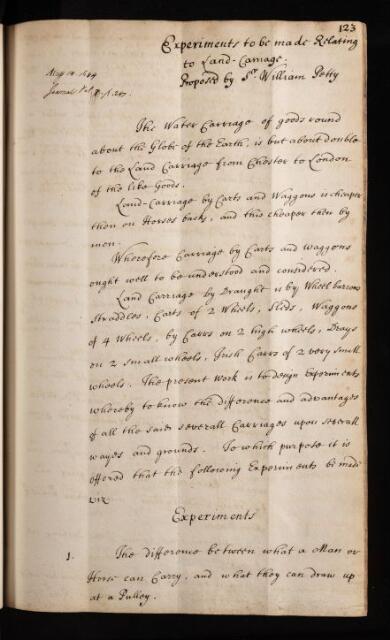 123
Experiments to be made Relating
to Land-Carriage.
Proposed by Sr. William Petty
The Water Carriage of goods round
about the Globe of the Earth, is but about double
to the Land Carriage from Chester to London
of the like Goods.
Land-Carriage by Carts and Waggons is cheaper
then on Horses backs, and this cheaper then by
men.
Wherefore Carriage by Carts and waggons
ought well to be understood and considered.
Land Carriage by Draught is by Wheel barrow
Straddles, Carts of 2 Wheels, Sleds, Waggons
of 4 Wheels, by Carrs on 2 high wheels, Drays
on 2 small wheels, Irish Carrs of 2 very small
wheels. The present work is to design Experiments
whereby to know the difference and advantages
of all the said severall Carriages upon severall
wayes and grounds. To which purpose it is
offered that the following Experiments be made
viz.
Experiments
1. The difference between what a Man or
Horse can Carry, and what they can draw up
at a Pulley.